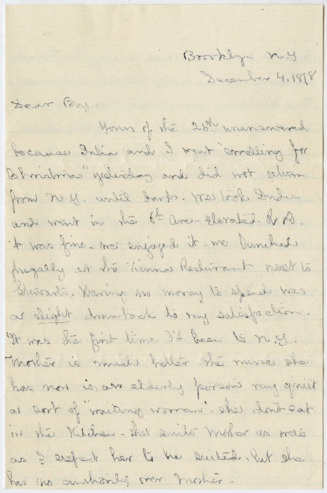 Brooklyn N.Y
December 4, 1878
Dear Boy.
Yours of the 28th unanswered
because India and I went "
yesterday and did not return
from N.Y. until dark. We took India
and went in the 6th Ave. Elevated R.R.
it was fine. We enjoyed it. We lunched
frugally at the Vienna Restaurant next to
Stewarts. Having no money to spend was
a slight drawback to my satisfaction.
It was the first time I'd been to N.Y.
Mother is much better the nurse she
has now is an elderly person very quiet
a sort of "waiting woman". She don't eat
in the kitchen. She suits Mother as well
as I expect her to be suited. But she
has no authority over Mother.